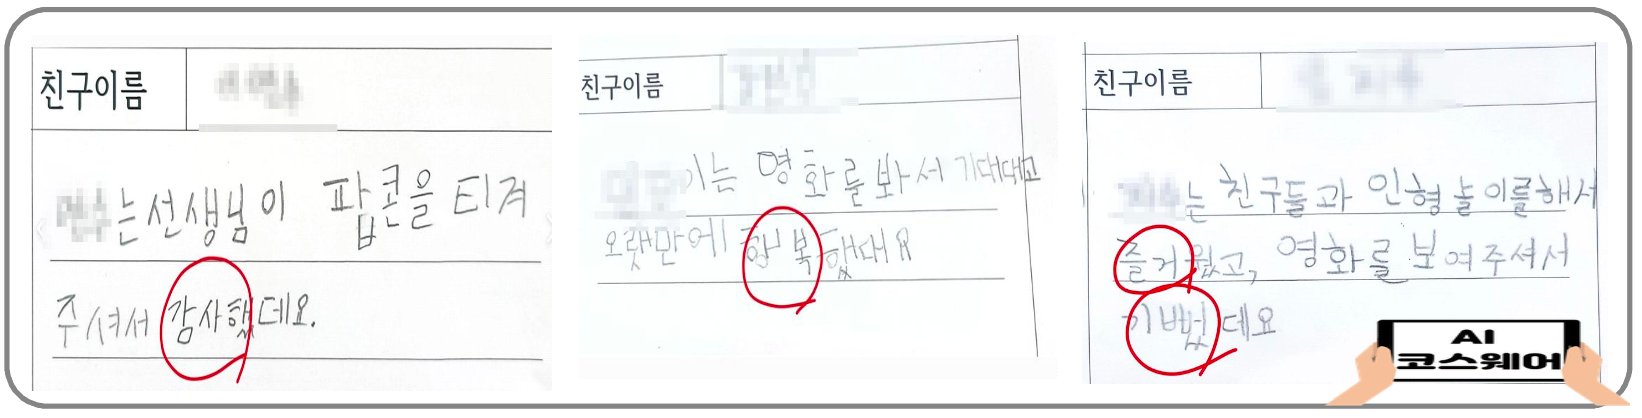 친구이름
는선생님이 팝콘을 티겨
주셔서 감사했데요.
친구이름
이는 영화를 봐서 기대대고
오랫만에 행복했대요
친구이름
는 친구들과 인형 놀이를해서
즐거웠고, 영화를 보여주셔서
기뻤데요
AI
코스웨어